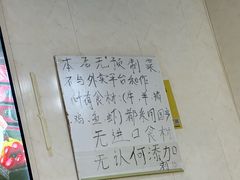 本店无预制菜
不与外卖平台合作
所有食材(牛羊猪
鸡鱼虾)都采用国产
无进口食材
无认何添加
剂